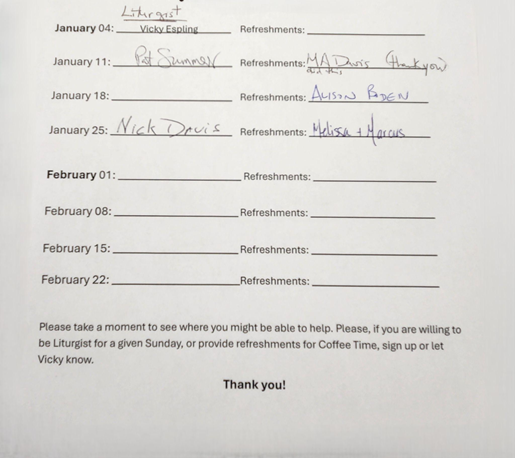 Liturgist
January 04: Vicky Espling Refreshments:
January 11: Pat Summer Refreshments: MA Davis (thank you)
did this
January 18: Refreshments: ALISON BODEN
January 25: NICK DAVIS Refreshments: Melissa + Marcus
February 01: Refreshments:
February 08: Refreshments:
February 15: Refreshments:
February 22: Refreshments:
Please take a moment to see where you might be able to help. Please, if you are willing to
be Liturgist for a given Sunday, or provide refreshments for Coffee Time, sign up or let
Vicky know.
Thank you!